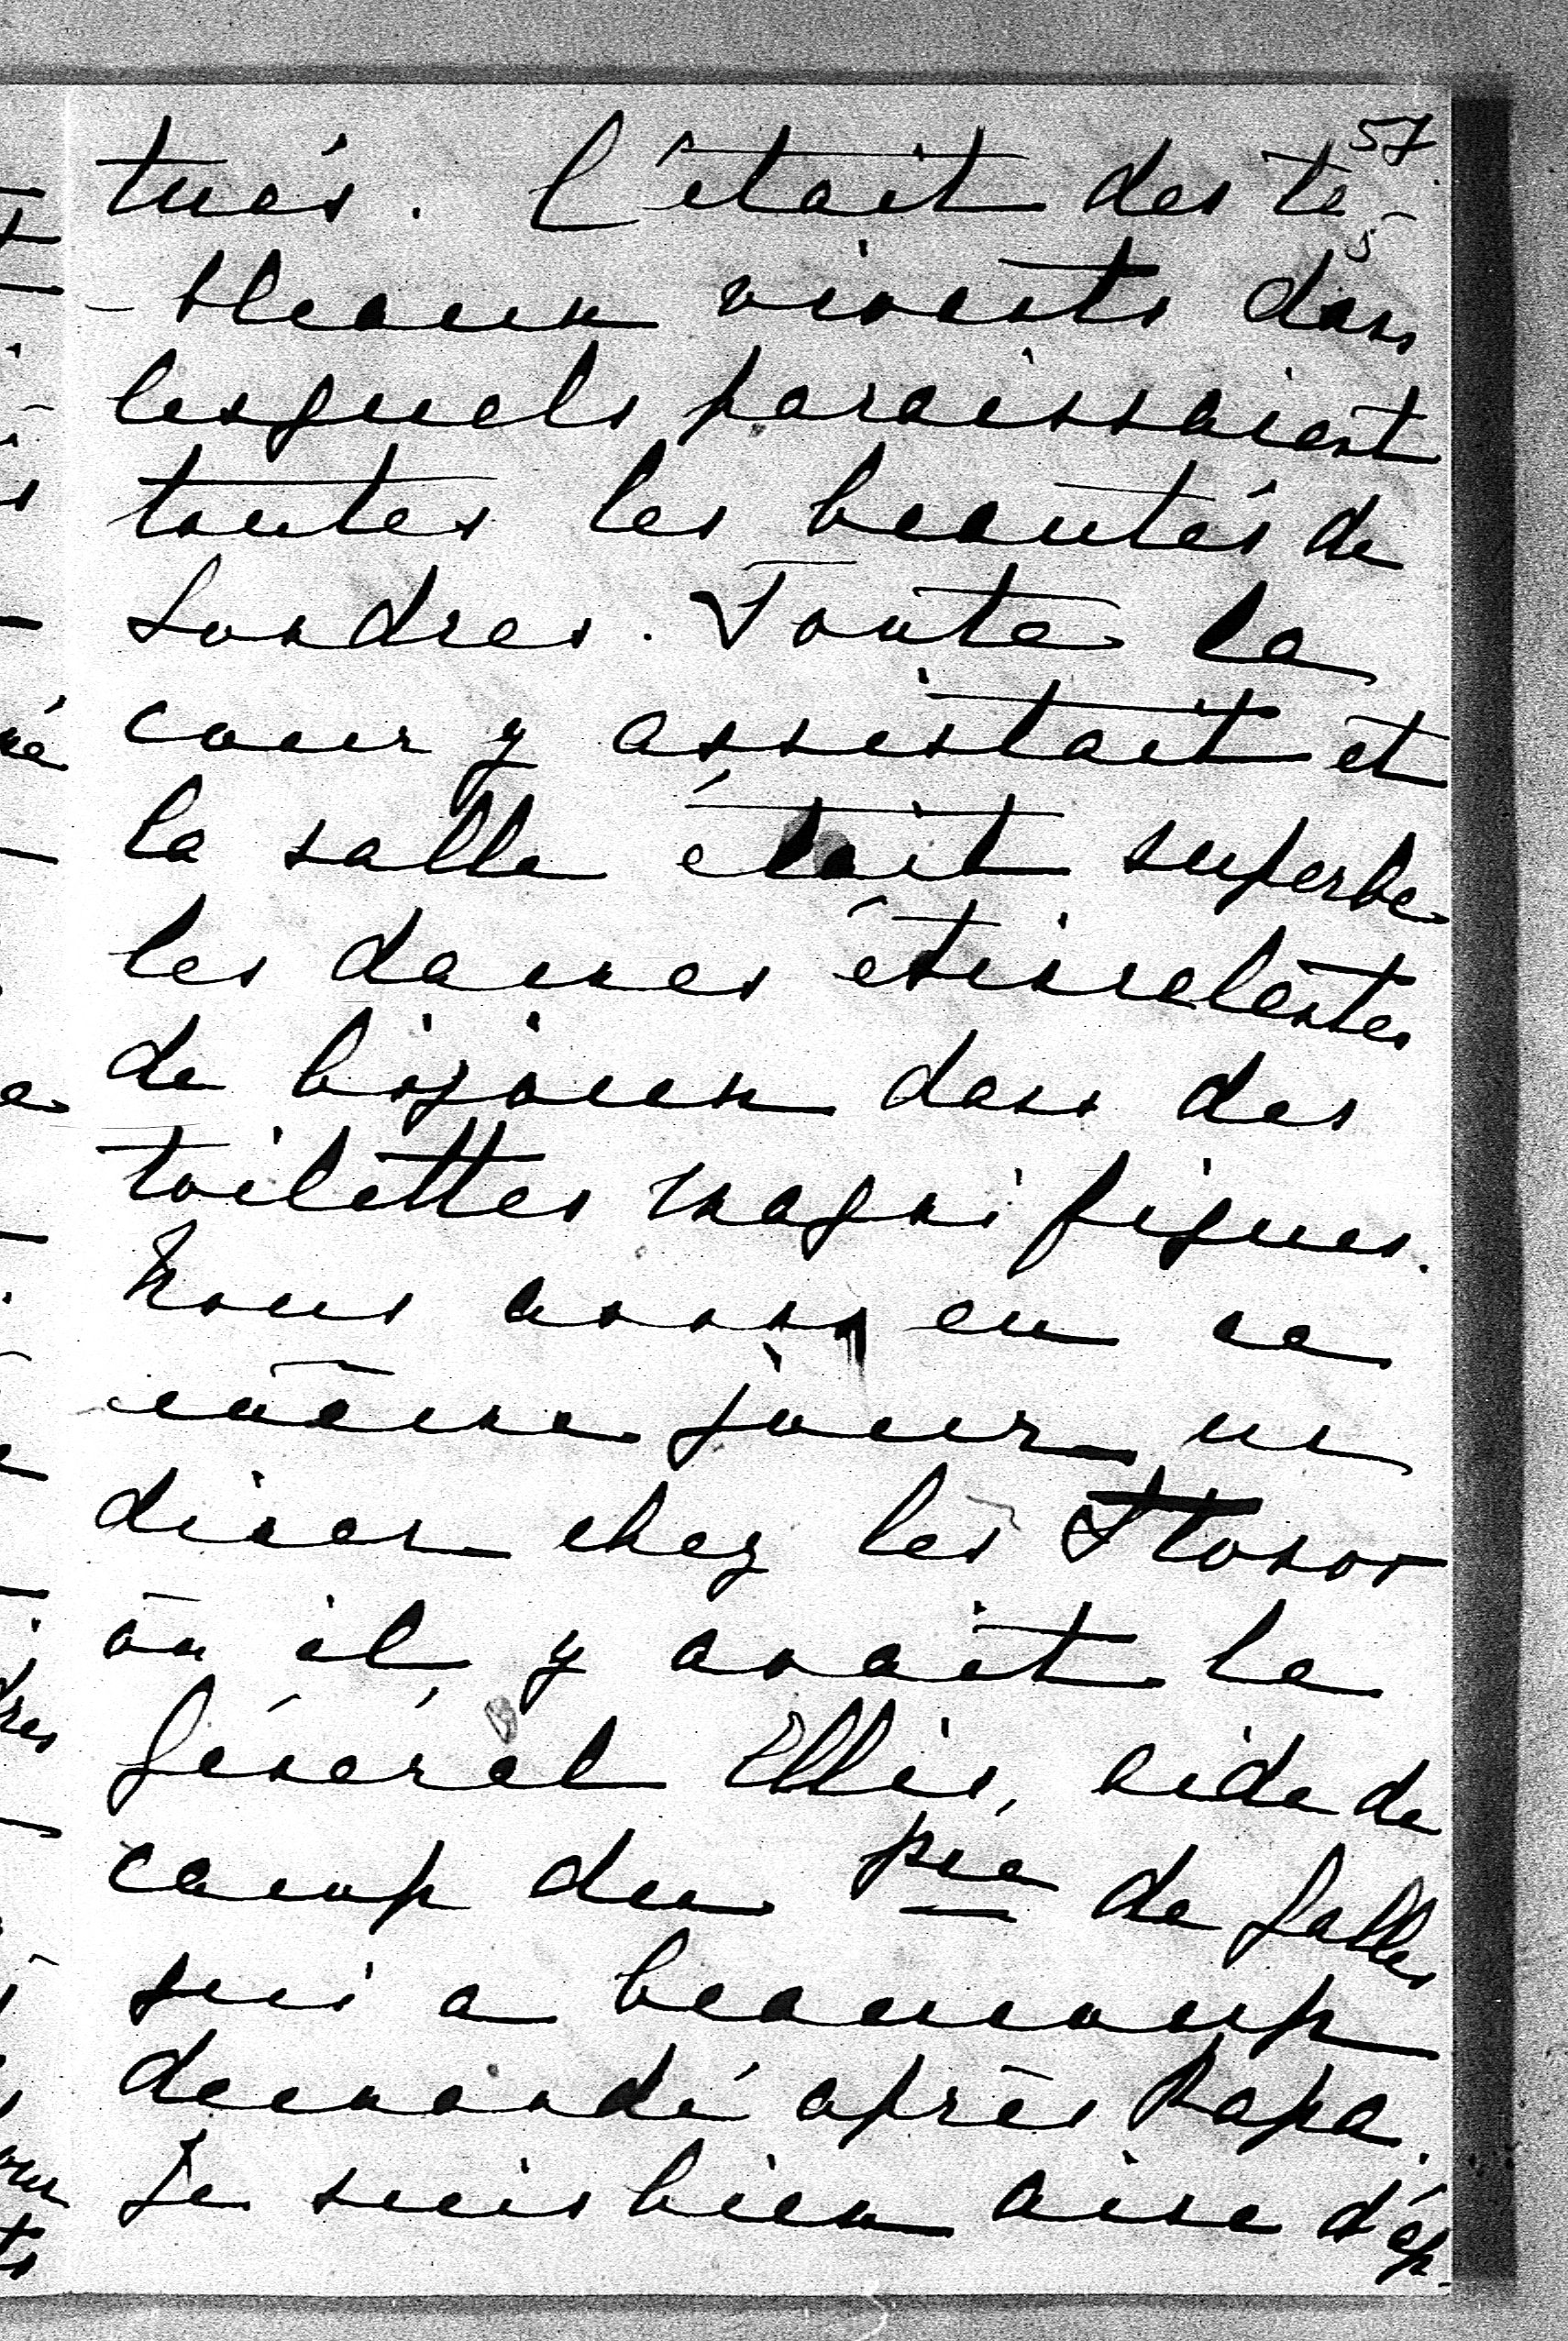 57
tués. C'était des ta-
-bleaux vivants dans
lesquels paraissaient
toutes les beautés de
Londres. Toute la
cour y assistait et
la salle était superbe
les dames étincelantes
de bijoux dans des
toilettes magnifiques.
Nous avons eu ce
même jour un
diner chez les Stonor
où il y avait le
Général Ellis, aide de
camp du pce de Galles
qui a beaucoup
demandé après Papa.
Je suis bien aise d'ap-